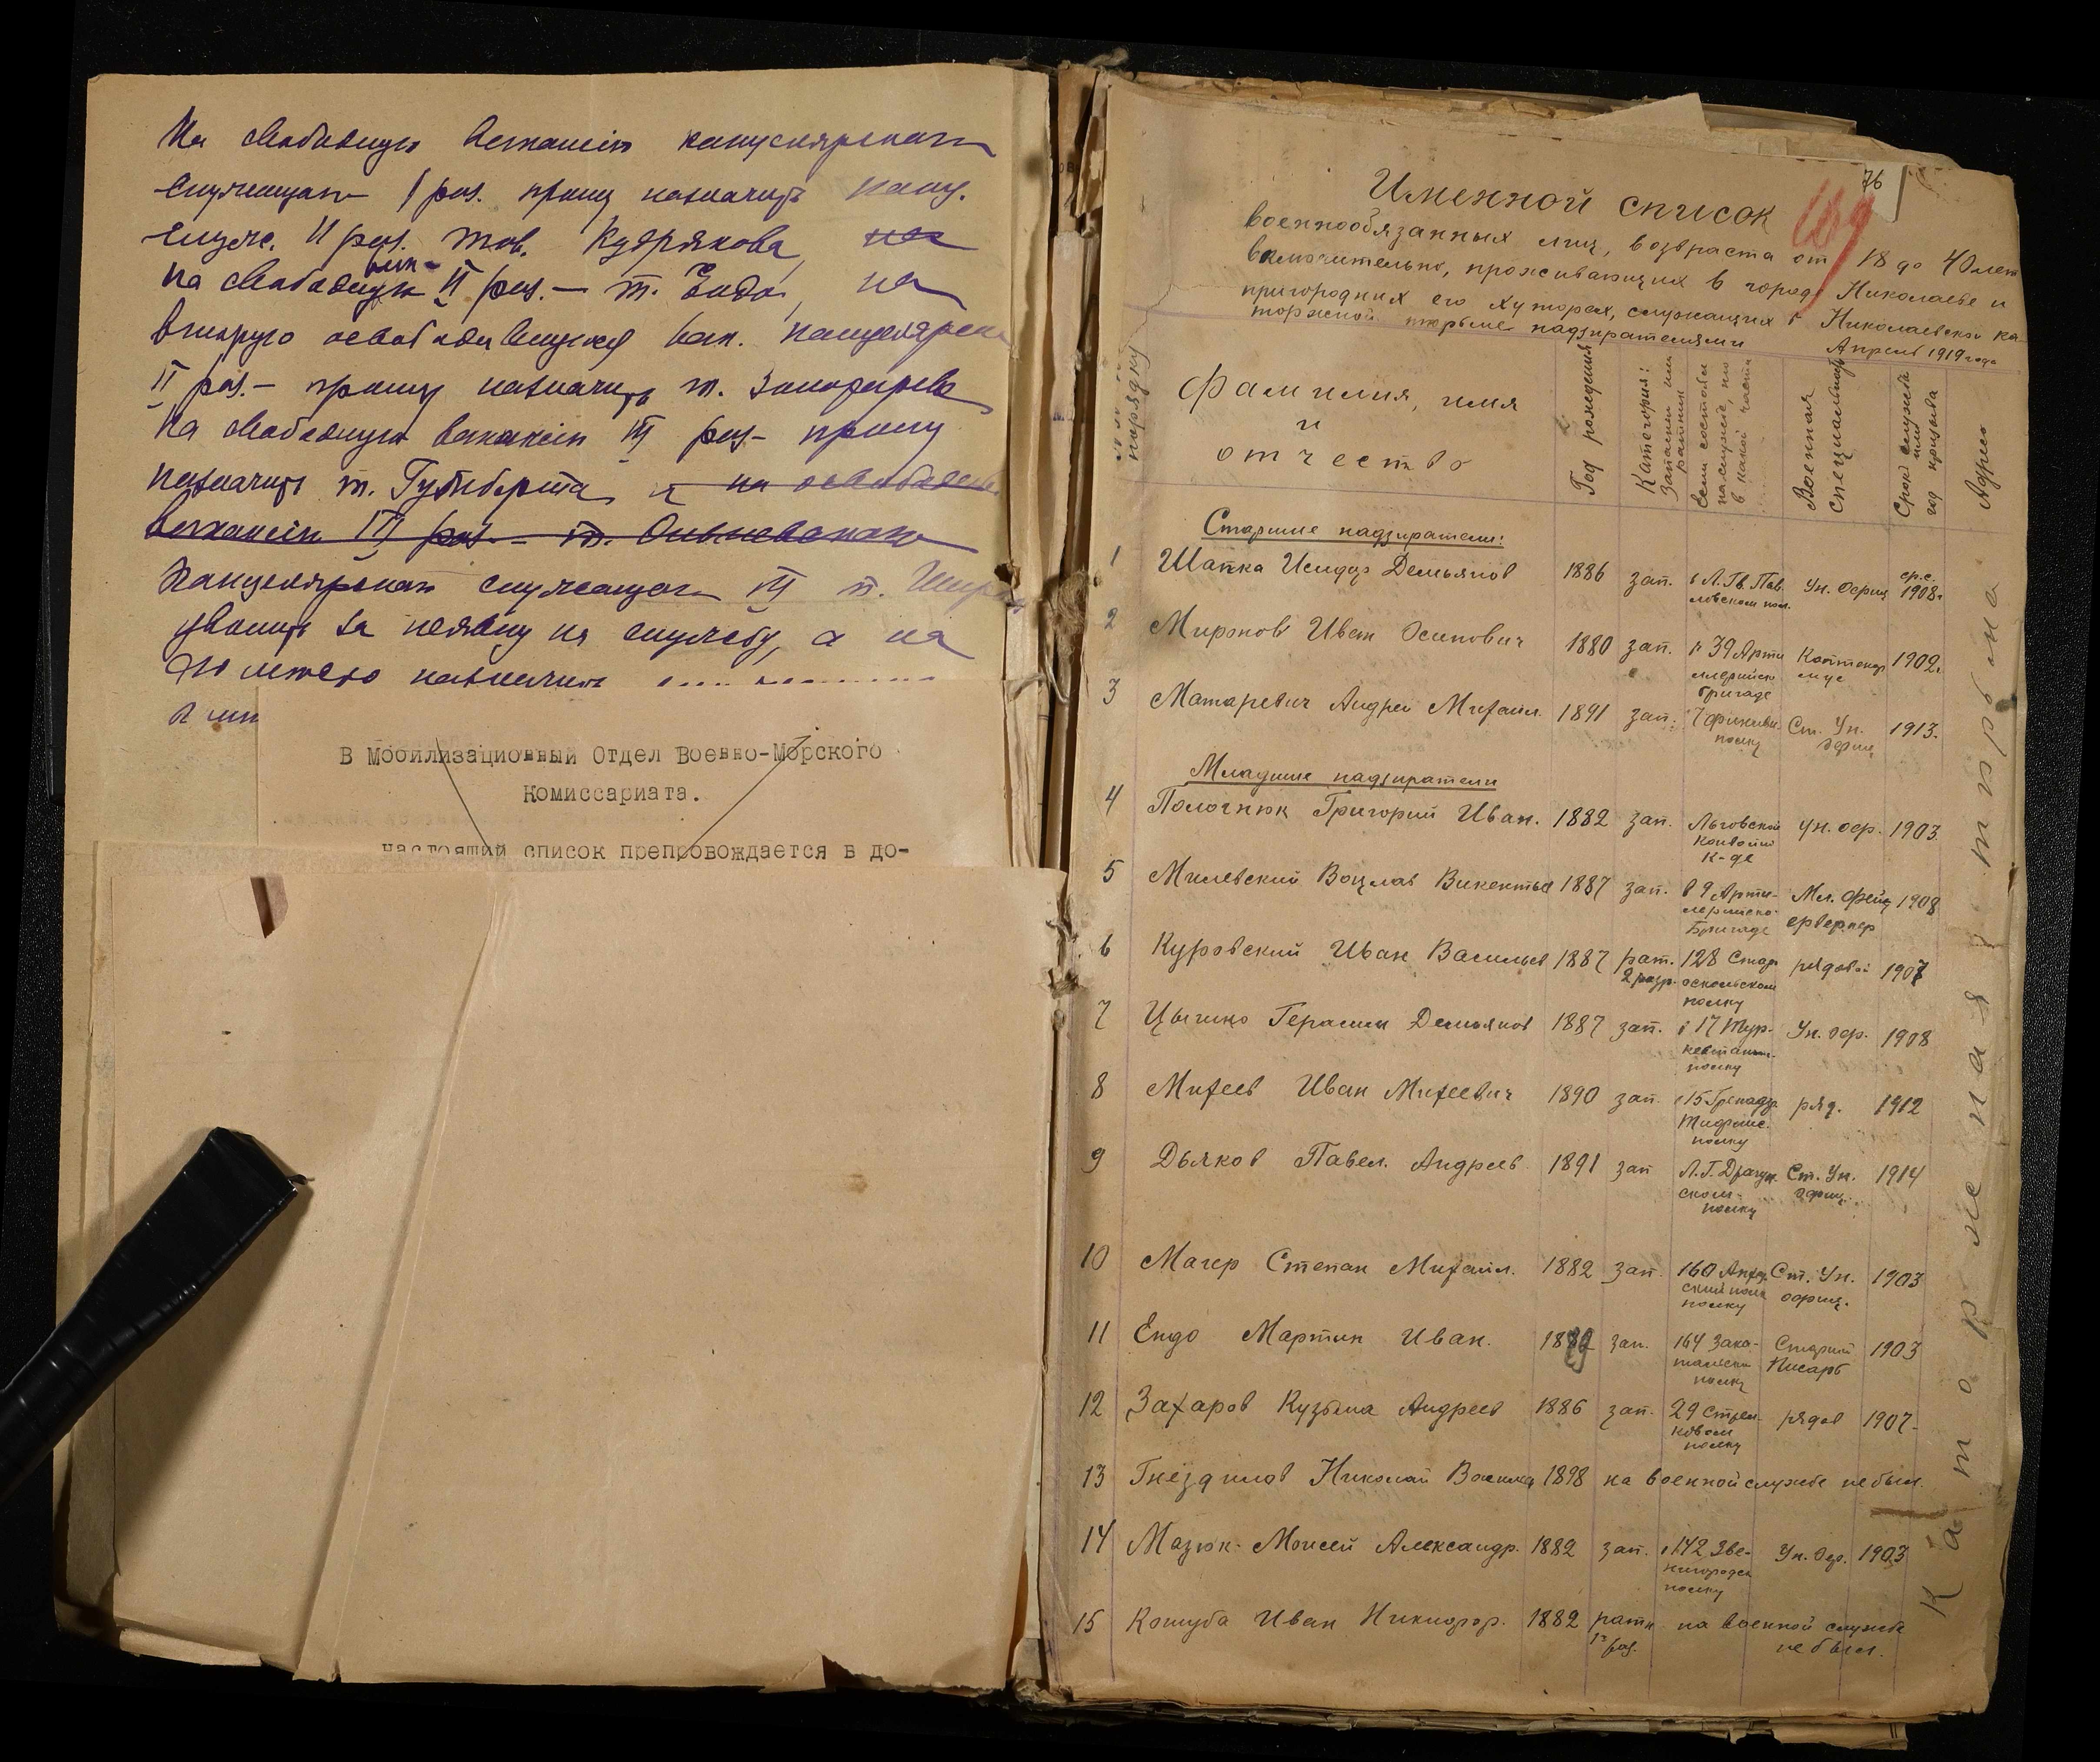 На свободную вакансию канцелярскаго
служащаго I раз. прошу назначить канц.
служ. II раз. тов. Кудрякова, на
на свободную вак. II раз. — т. Ендо, на
вторую освободившуюся вак. канцелярск
II раз. — прошу назначить т.
На свободную вакансию III раз. прошу
назначить т. Гутберта и на освободевш
вакансию III раз. — т.
Канцелярскаго служащаго III т.
уволить за неявку на службу, а на
его место назначить
В Мобилизационный Отдел Военно-Морского
Комиссариата.
настоящий список препровождается в до-
76
Именной список
военнообязанных лиц, возвраста от 18 до 40 лет
включительно, проживающих в городе Николаеве и
пригородных его хуторах, служащих в Николаевской ка-
торжной тюрьме надзирателями
Апрель 1919 года
порядку
Фамилия, имя
и
отчество
Год рождения
Категория:
Запасный или
ратник
если состоял
на службе, то
в какой части
Военная
специальность
Срок службы
или
год призыва
Адрес
Старшие надзиратели:
1 Шапка Исидор Демьянов 1886 зап. в Л. Гв. Пав-
ловском пол. Ун. Офиц. ср. с.
1908 г.
2 Миронов Иван Осипович 1880 зап. в 39 Арти
лерийск
бригаде 1902 г.
3 Матаревич Андрей Михайл. 1891 зап.
полку Ст. Ун.
Офиц 1913.
Младшие надзиратели
4 Полочнюк Григорий Иван. 1882 зап. Льговской
Конвойн
к-де Ун. оф. 1903
5 Милевский Воцлав Викентьев 1887 зап. в 9 Арти-
лерийско
Бригаде Мл. фейер
ерверкер 1908
6 Куровский Иван Васильев 1887 рат.
2 разр. 128 Старо
оскольском
полку рядовой 1907
7 Цышко Герасим Демьянов 1887 зап. в 17 Тур-
кестанск.
полку Ун. Оф. 1908
8 Михеев Иван Михеевич 1890 зап. в 15 Гренадер
Тифлис.
полку ряд. 1912
9 Дьяков Павел. Андреев. 1891 зап Л. Г. Драгун
ском
полку Ст. Ун.
Офиц. 1914
10 Магер Степан Михайл. 1882 зап. 160 Абхаз
полку Ст. Ун.
офиц. 1903
11 Ендо Мартин Иван. 1882 зап. 164 Зака-
тальском
полку Старший
Писарь 1903
12 Захаров Кузьма Андреев 1886 зап. 29 Стрел-
ковом
полку рядов 1907.
13 Гнездилов Николай Василь 1898 на военной службе не был.
14 Мазюк Моисей Александр. 1882 зап. в 142 Зве-
нигородск
полку Ун. Оф. 1903
15 Кошуба Иван Никифор. 1882 ратн
1 раз. на военной службе
не был.
Каторжная тюрьма